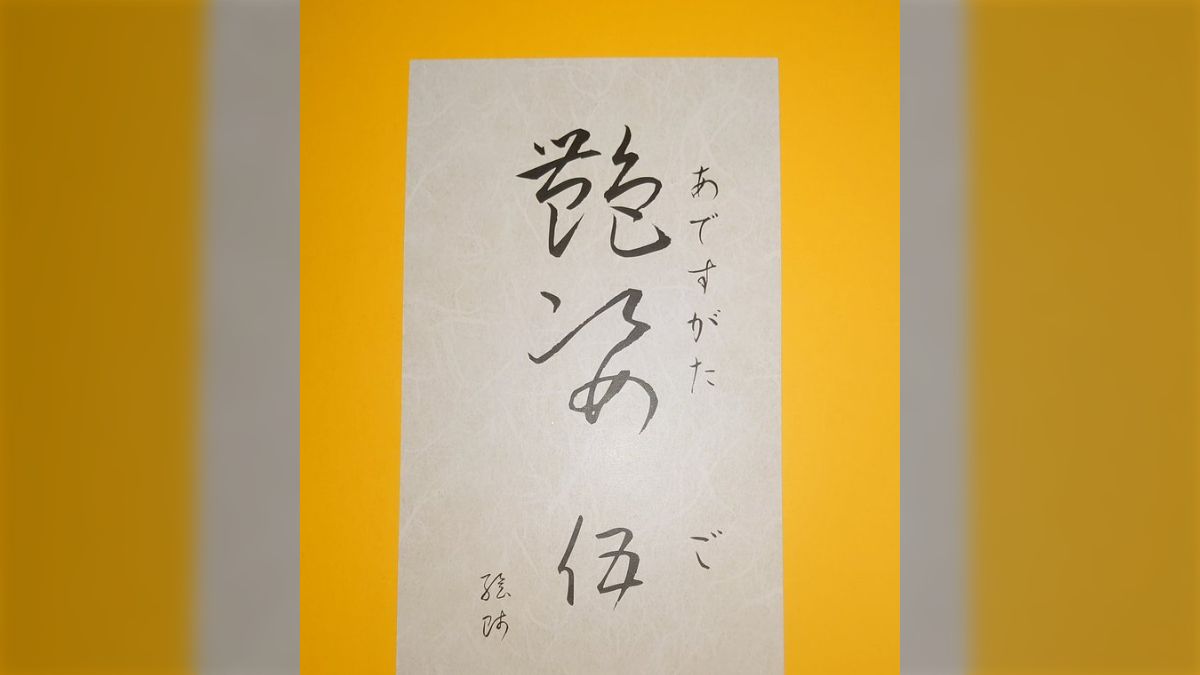 あですがた ご
艶姿 伍
絵師